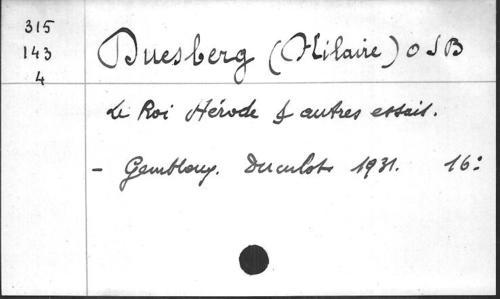 315
143
4
Duesberg (Hilaire) O S B
Le Roi Hérode & autres essais.
- Gembloux. Duculot 1931. 16: